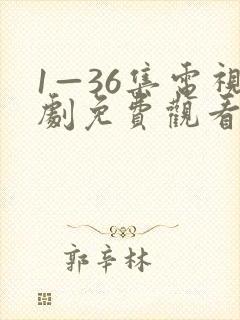 1—36集電視
劇免費觀看
郭辛林